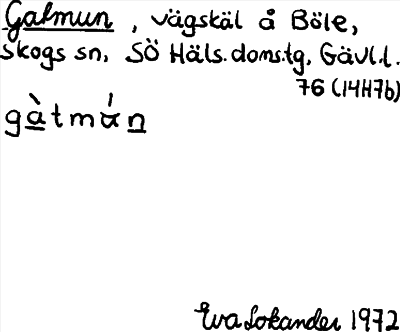 Gatmun, vägskäl å Böle,
Skogs sn, SÖ Häls. doms.tg, Gävl.l.
76 (14H7b)
gàtmα̍n
Eva Lokander 1972